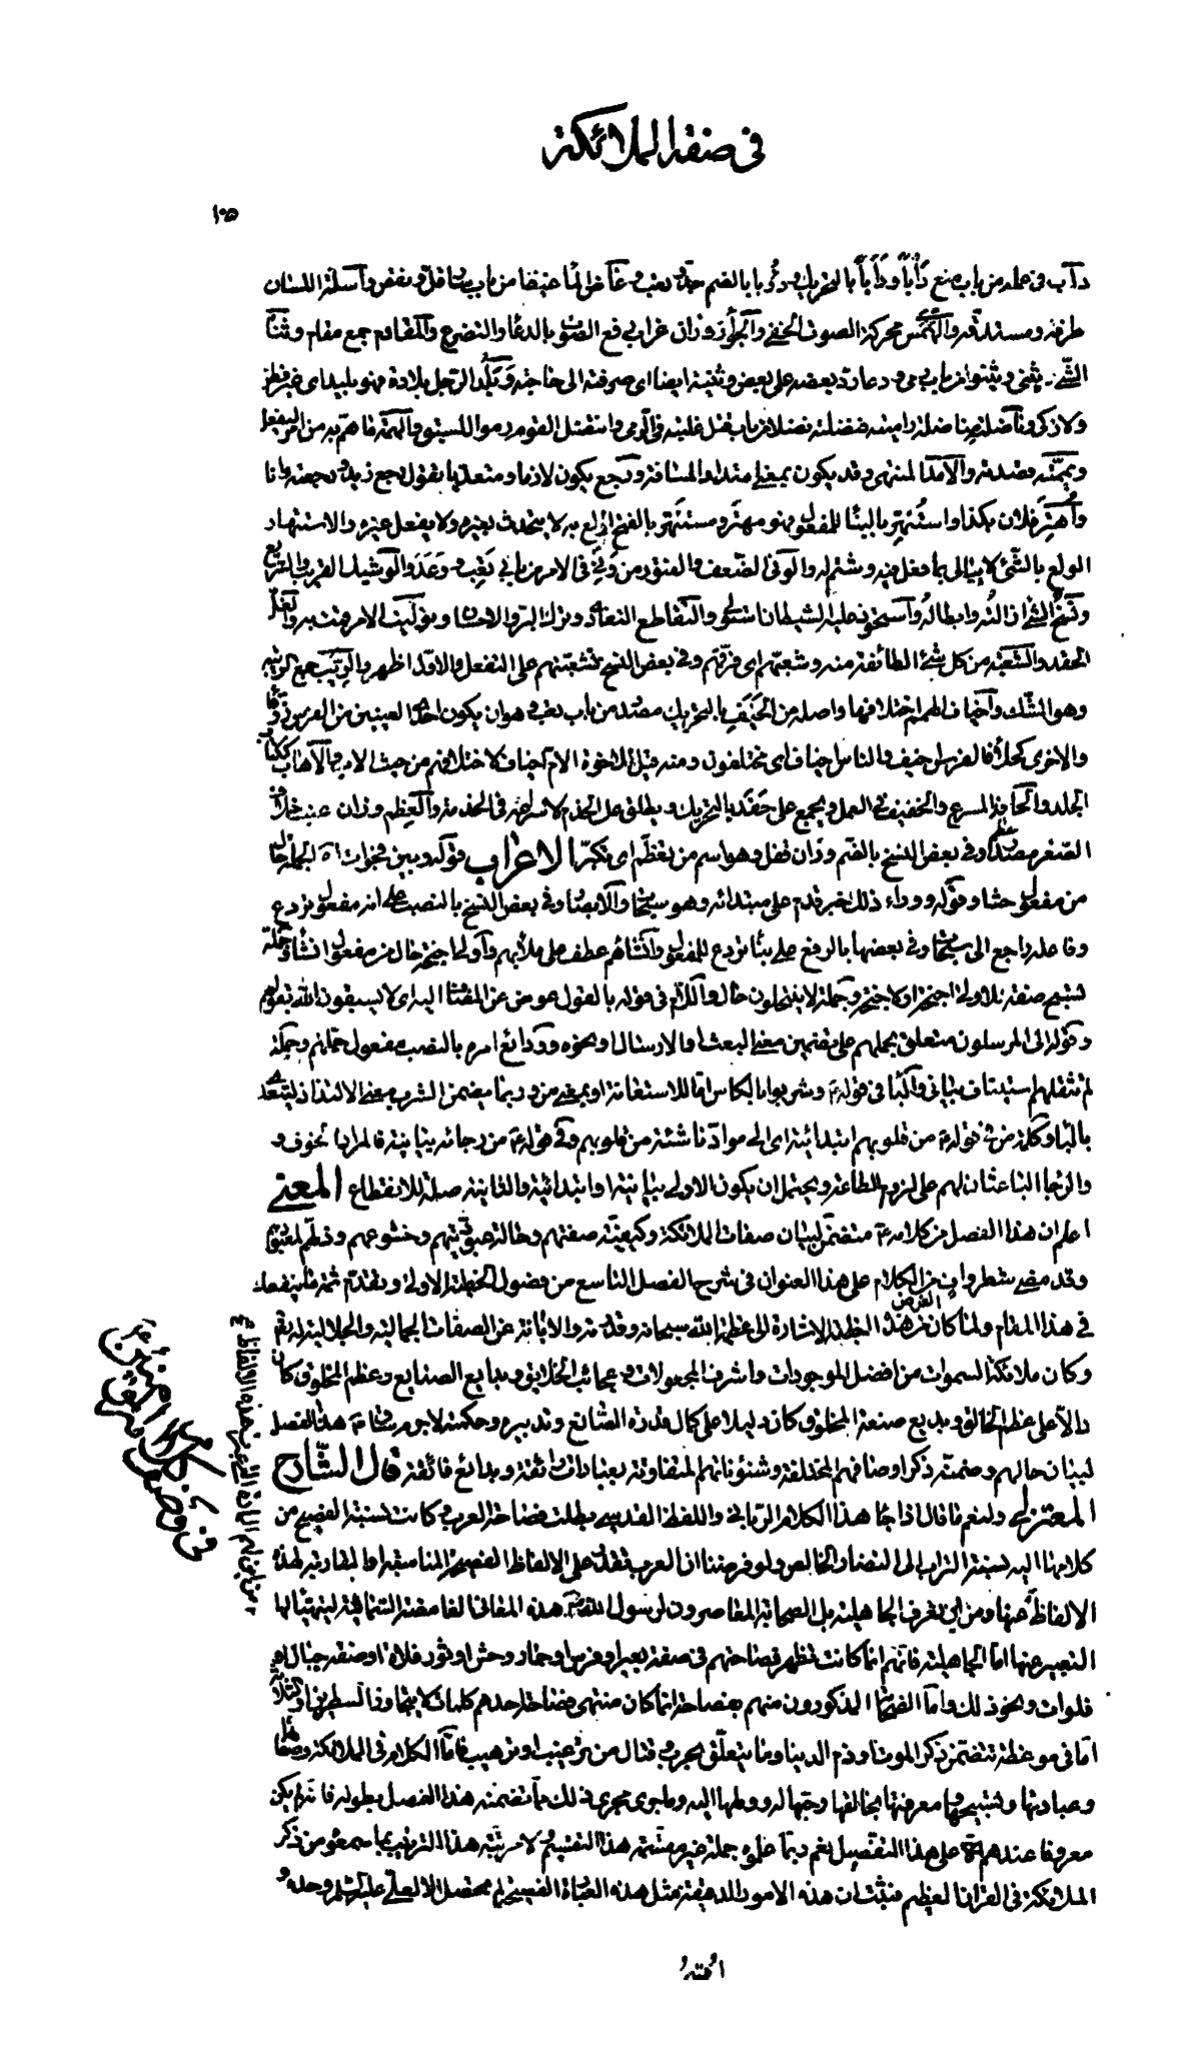 في صفة الملائكة
١٠٥
دأب في عمله من باب منع دأبا ودأبا بالتحريك ودؤبا بالضم جد وتعب و غاض الماء غيضا من باب سار قل ونقص وأسلة اللسان
طرفه ومستدقه والهمس محركة الصوت الخفي والجؤار وزان غراب رفع الصوت بالدعاء والتضرع والمقادم جمع مقدم وثنا
الشيء يثني ويثنوا من باب رمى ودعا رد بعضه على بعض وثنيته ايضا اى صرفته الى حاجته وبلد الرجل بلادة فهو بليد اى غير فطن
ولا ذكي وناضلته مناضلة راميته فنضلته نضلا من باب قتل غلبته في الرمي وانتضل القوم رموا للسبق والهمة ما هم به من امر ليفعل
ويممته قصدته والامد المنتهى وقد يكون بمعنى امتداد المسافة ورجع يكون لازما ومتعديا يقول رجع زيد ورجعته انا
واهتر فلان بكذا واستهتر بالبناء للمفعول فهو مهتر ومستهتر بالفتح اولع به لا يتحدث بغيره ولا يفعل غيره والاستهتار
الولع بالشيء لا يبالى بما فعل فيه وشتم له والونى الضعف والفتور من ونى في الامر من بابي تعب ووعد والوشيك القريب والسريع
ونسخ الشيء ازالته وابطاله واستحوذ عليه الشيطان استولى والتقاطع التعادي وترك البر والاحسان وتوليت الامر قمت به والغل
الحقد والشعبة من كل شيء الطائفة منه وشعبتهم اى فرقتهم وفي بعض النسخ تشعبتهم على التفعل والاول اظهر والريب جمع الريبة
وهو الشك واخياف الهمم اختلافها واصله من الخيف بالتحريك مصدر من باب تعب وهو ان يكون احدى العينين من الفرس زرقاء
والاخرى كحلاء فالفرس اخيف والناس اخياف اى مختلفون ومنه قيل لاخوة الام اخياف لاختلافهم من حيث الاب والاهاب ككتاب
الجلد والحافد المسرع والخفيف في العمل ويجمع على حفد بالتحريك ويطلق على الخدم لاسراعهم في الخدمة والعظم وزان عنب خلاف
الصغر مصدر عظم وفي بعض النسخ بالضم وزان قفل وهو اسم من تعظم اى تكبر الاعراب قوله وبين فجوات اه الجملة حال
من مفعول حشا وقوله ووراء ذلك خبر قدم على مبتدائه وهو سبحات والابصار في بعض النسخ بالنصب على انه مفعول تردع
وفاعله راجع الى سبحات وفي بعضها بالرفع على بناء تردع للمفعول وانشاءهم عطف على ملأ بهم وأولي اجنحة حال من مفعول انشاء وجملة
تسبح صفة لاولى اجنحة او لاجنحة وجملة لا ينتحلون حال واللام في قوله بالقول عوض عن المضاف اليه اى لا يسبقون الله بقولهم
وقوله الى المرسلين متعلق بحملهم على تضمين معنى البعث او الارسال او نحوه وودائع امره بالنصب مفعول حملهم وجملة
لم تثقلهم استيناف بياني والباء في قوله ع وشربوا بالكأس اما للاستعانة او بمعنى من وربما يضمن الشرب معنى الالتذاذ ليتعدى
بالباء وكلمة من في قوله ع من قلوبهم ابتدائية اى الى مواد ناشئة من قلوبهم وفي قوله ع من رجائه بيانية فالمراد بها الخوف و
والرجاء الباعثان لهم على لزوم الطاعة ويحتمل ان يكون الاولى بيانية او ابتدائية والثانية صلة للانقطاع المعنى
اعلم ان هذا الفصل من كلامه ع متضمن لبيان صفات الملائكة وكيفية صفتهم وحالة عبوديتهم وخشوعهم وذلهم لمعبودهم
وقد مضى شطر واف من الكلام على هذا العنوان في شرح الفصل التاسع من فصول الخطبة الاولى وتقدم ثمة ما ينفعك
في هذا المقام ولما كان الغرض من هذه الخطبة الاشارة الى عظمة الله سبحانه وقدرته والابانة عن الصفات الجمالية والجلالية له تعالى
وكان ملائكة السموات من افضل الموجودات واشرف المجعولات وعجائب الخلايق وبدايع الصنايع وعظم المخلوق كان
دالا على عظم الخالق وبديع صنعة المخلوق كان دليلا على كمال قدرة الصانع وتدبيره وحكمته لا جرم ساق ع هذا الفصل
لبيان حالهم وضمنه ذكر اوصافهم المختلفة وشئوناتهم المتفاوتة بعبادات رائقة وبدائع فائقة قال الشارح
المعتزلي ولنعم ما قال اذا جاء هذا الكلام الرباني واللفظ القدسي بطلت فصاحة العرب وكانت نسبة الفصيح من
كلامها اليه نسبة التراب الى النضار الخالص ولو فرضنا ان العرب تقدر على الالفاظ الفصيحة المناسبة او المقاربة لهذه
الالفاظ من اين لهم المادة التي عبرت هذه الالفاظ ع
عنها ومن اين تعرف الجاهلية بل الصحابة المعاصرون لرسول الله ص هذه المعاني الغامضة السمائية ليتهيأ لها
التعبير عنها اما الجاهلية فانهم انما كانت تظهر فصاحتهم في صفة بعير او فرس او حمار وحش او ثور فلاة او صفة جبال او
فلوات ونحو ذلك واما الصحابة المذكورون منهم بفصاحة انما كان منتهى فصاحة احدهم كلمات لا يتجاوز السطرين او الثلاثة
اما في موعظة تتضمن ذكر الموت او ذم الدنيا وما يتعلق بحرب وقتال من ترغيب او ترهيب فاما الكلام في الملائكة وصفاتها
وعباداتها وتسبيحها ومعرفتها بخالقها وحبها له وولهها اليه وما جرى مجرى ذلك مما تضمنه هذا الفصل بطوله فانه لم يكن
معروفا عندهم على هذا التفصيل نعم ربما علموه جملة غير مقسمة هذا التقسيم ولا مرتبة هذا الترتيب بما سمعوه من ذكر
الملائكة في القران العظيم فثبت ان هذه الامور الدقيقة بمثل هذه العبارة الفصيحة لم تحصل الا لعلي عليه السلم وحده و